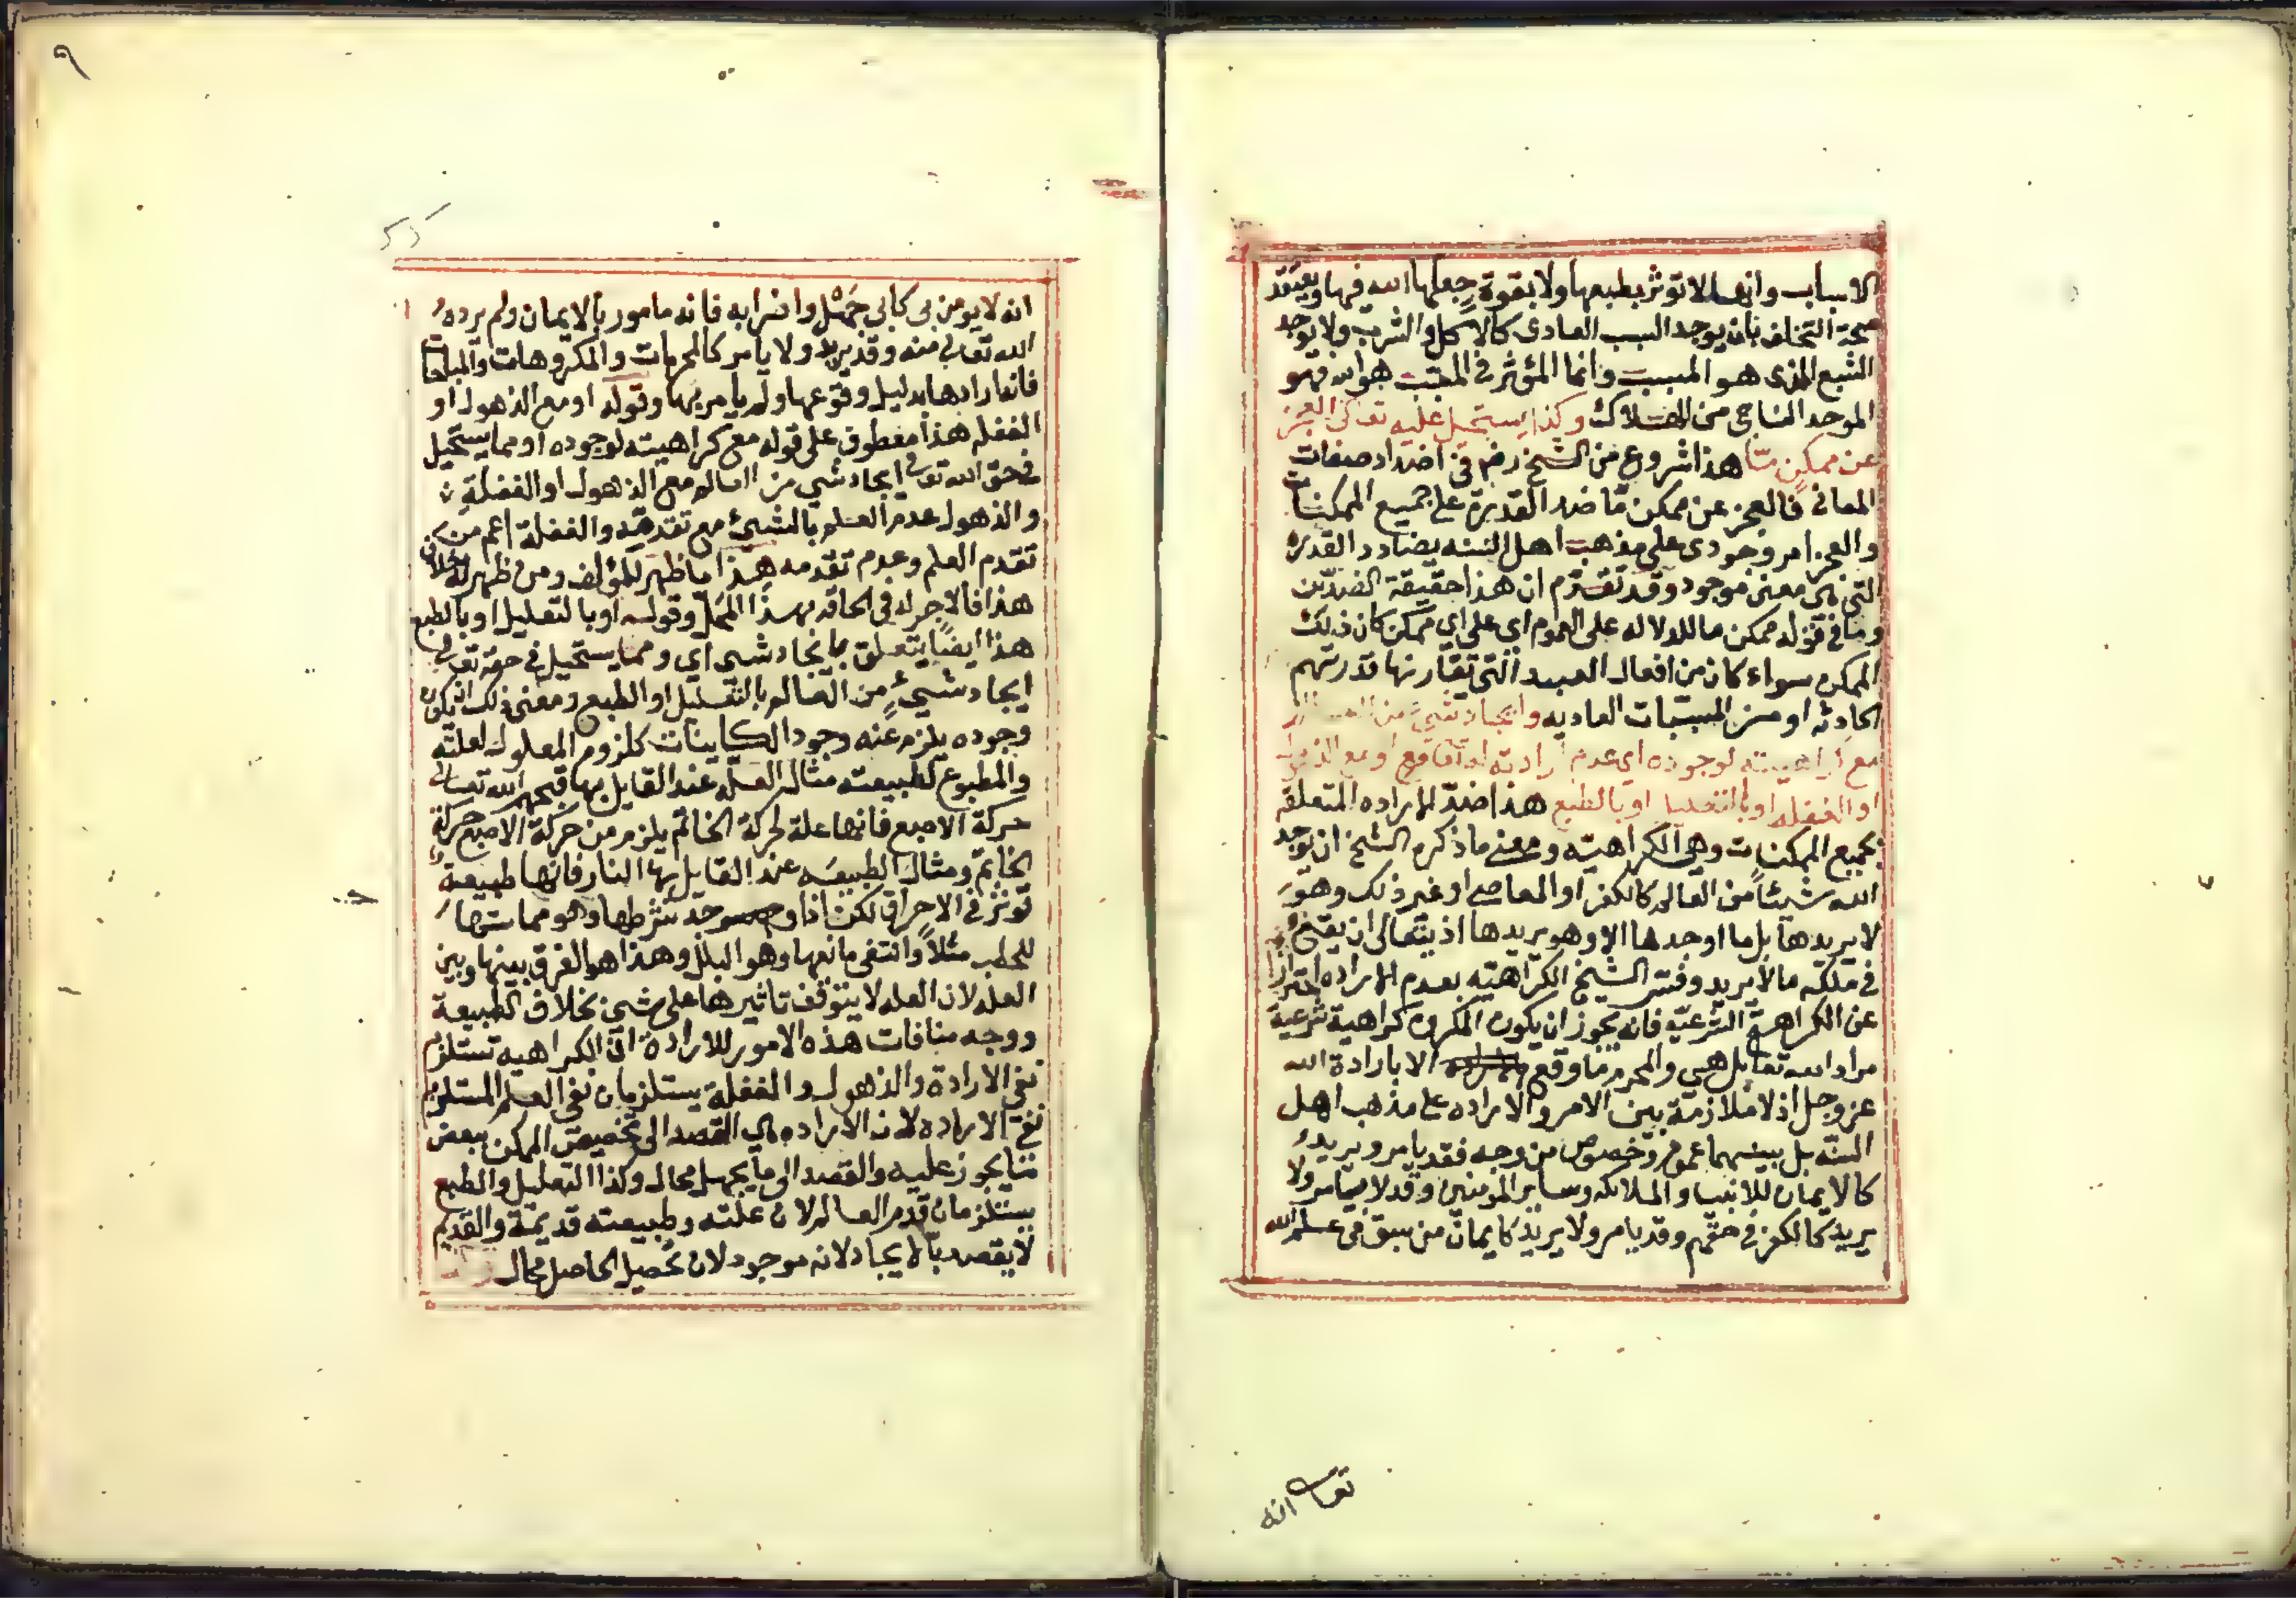 الاسباب وانها لا توثر بطبعها ولا بقوة جعلها الله فيها ويعتقد
صحة التخلف بان يوجد السبب العادى كالاكل والشرب ولا يوجد
الشبع الذى هو المسبب وانما المؤثر فى المسبب هو الله فهو
الموحد الناجى من الهلاك وكذا يستحيل عليه تعالى العجز
عن ممكن مّا هذا شروع من الشيخ رضى فى اضداد صفات
المعانى فالعجز عن ممكن مّا ضد القدرة على جميع الممكنات
والعجز امر وجودى على مذهب اهل السنه يضادد القدره
التى هى معنى موجود وقد تقدم ان هذا حقيقة الضدّين
وما فى قوله ممكن ما للدلاله على العموم اى على اي ممكن كان ذلك
الممكن سواء كان من افعال العبيد التى تقارنها قدرتهم
الحادثه او من المسببات العاديه وايجاد شىء من العالم
مع كراهيته لوجوده اى عدم ارادته له تعالى او مع الذهول
او الغفله او بالتعليل او بالطبع هذا ضدّ الاراده المتعلقه
بجميع الممكنات وهى الكراهيته ومعنى ما ذكره الشيخ ان يوجد
الله شيئاً من العالم كالكفر او المعاصى او غير ذلك وهو
لا يريدها بل ما اوجدها الا وهو يريدها اذ يتعالى ان يقع
فى ملكه ما لا يريد وفسّر الشيخ الكراهيته بعدم الاراده احترازا
عن الكراهة الشرعيّه فانه يجوز ان يكون المكروه كراهية شرعية
مراد الله تعا بل هى والمحرم ما وقع الا بارادة الله
عز وجل اذ لا ملازمة بين الامر والاراده على مذهب اهل
السنّه بل بينهما عموم وخصوص من وجه فقد يامر ويريد
كالايمان للانبيا والملائكه وساير المومنين وقد لا يامر ولا
يريد كالكفر فى حقهم وقد يامر ولا يريد كايمان من سبق فى علم الله
تعالى انه
٩
انه لا يومن بى كابى جَهْل واضرابه فانه مامور بالايمان ولم يرده
الله تعالى منه وقد يريد ولا يامر كالمحرمات والمكروهات والمباحات
فانه ارادها بدليل وقوعها ولم يامر بها وقوله او مع الذهول او
الغفله هذا معطوف على قوله مع كراهيته لوجوده او مما يستحيل
فى حق الله تعالى ايجاد شي من العالم مع الذهول او الغفلة
والذهول عدم العلم بالشىء مع تقدمه والغفلة اعم من
تقدم العلم وعدم تقدمه هذا ما ظهر للمؤلف ومن ظهر له خلاف
هذا فالاجر له فى الحاقه بهذا المحل وقوله او بالتعليل او بالطبع
هذا ايضًا يتعلق بايجاد شى اي ومما يستحيل فى حقه تعالى
ايجاد شىءٍ من العالم بالتعليل او الطبع ومعنى ذلك ان يكون
وجوده يلزم عنه وجود الكاينات كلزوم المعلول لعلته
والمطبوع لطبيعته مثال العلّه عند القايل بها قبحهم الله تعالى
حركة الاصبع فانها علة لحركة الخاتم يلزم من حركة الاصبع حركة
الخاتم ومثال الطبيعه عند القايل بها النار فانها طبيعة
توثر فى الاحراق لكن اذا وجد شرطها وهو مماستها
للحطب مثلاً وانتفى مانعها وهو البلل وهذا هو الفرق بينها وبين
العله لان العله لا يتوقف تاثيرها على شى بخلاف الطبيعة
ووجه منافات هذه الامور للارادة ان الكراهيه تستلزم
نفى الارادة والذهول والغفلة يستلزمان نفى العلم المستلزم
نفى الاراده لان الاراده هى القصد الى تخصيص الممكن ببعض
ما يجوز عليه والقصد الى ما يجهل محال وكذا التعليل والطبع
يستلزمان قدم العالم لان علته وطبيعته قديمة والقديم
لا يقصد بالايجاد لانه موجود لان تحصيل الحاصل محال